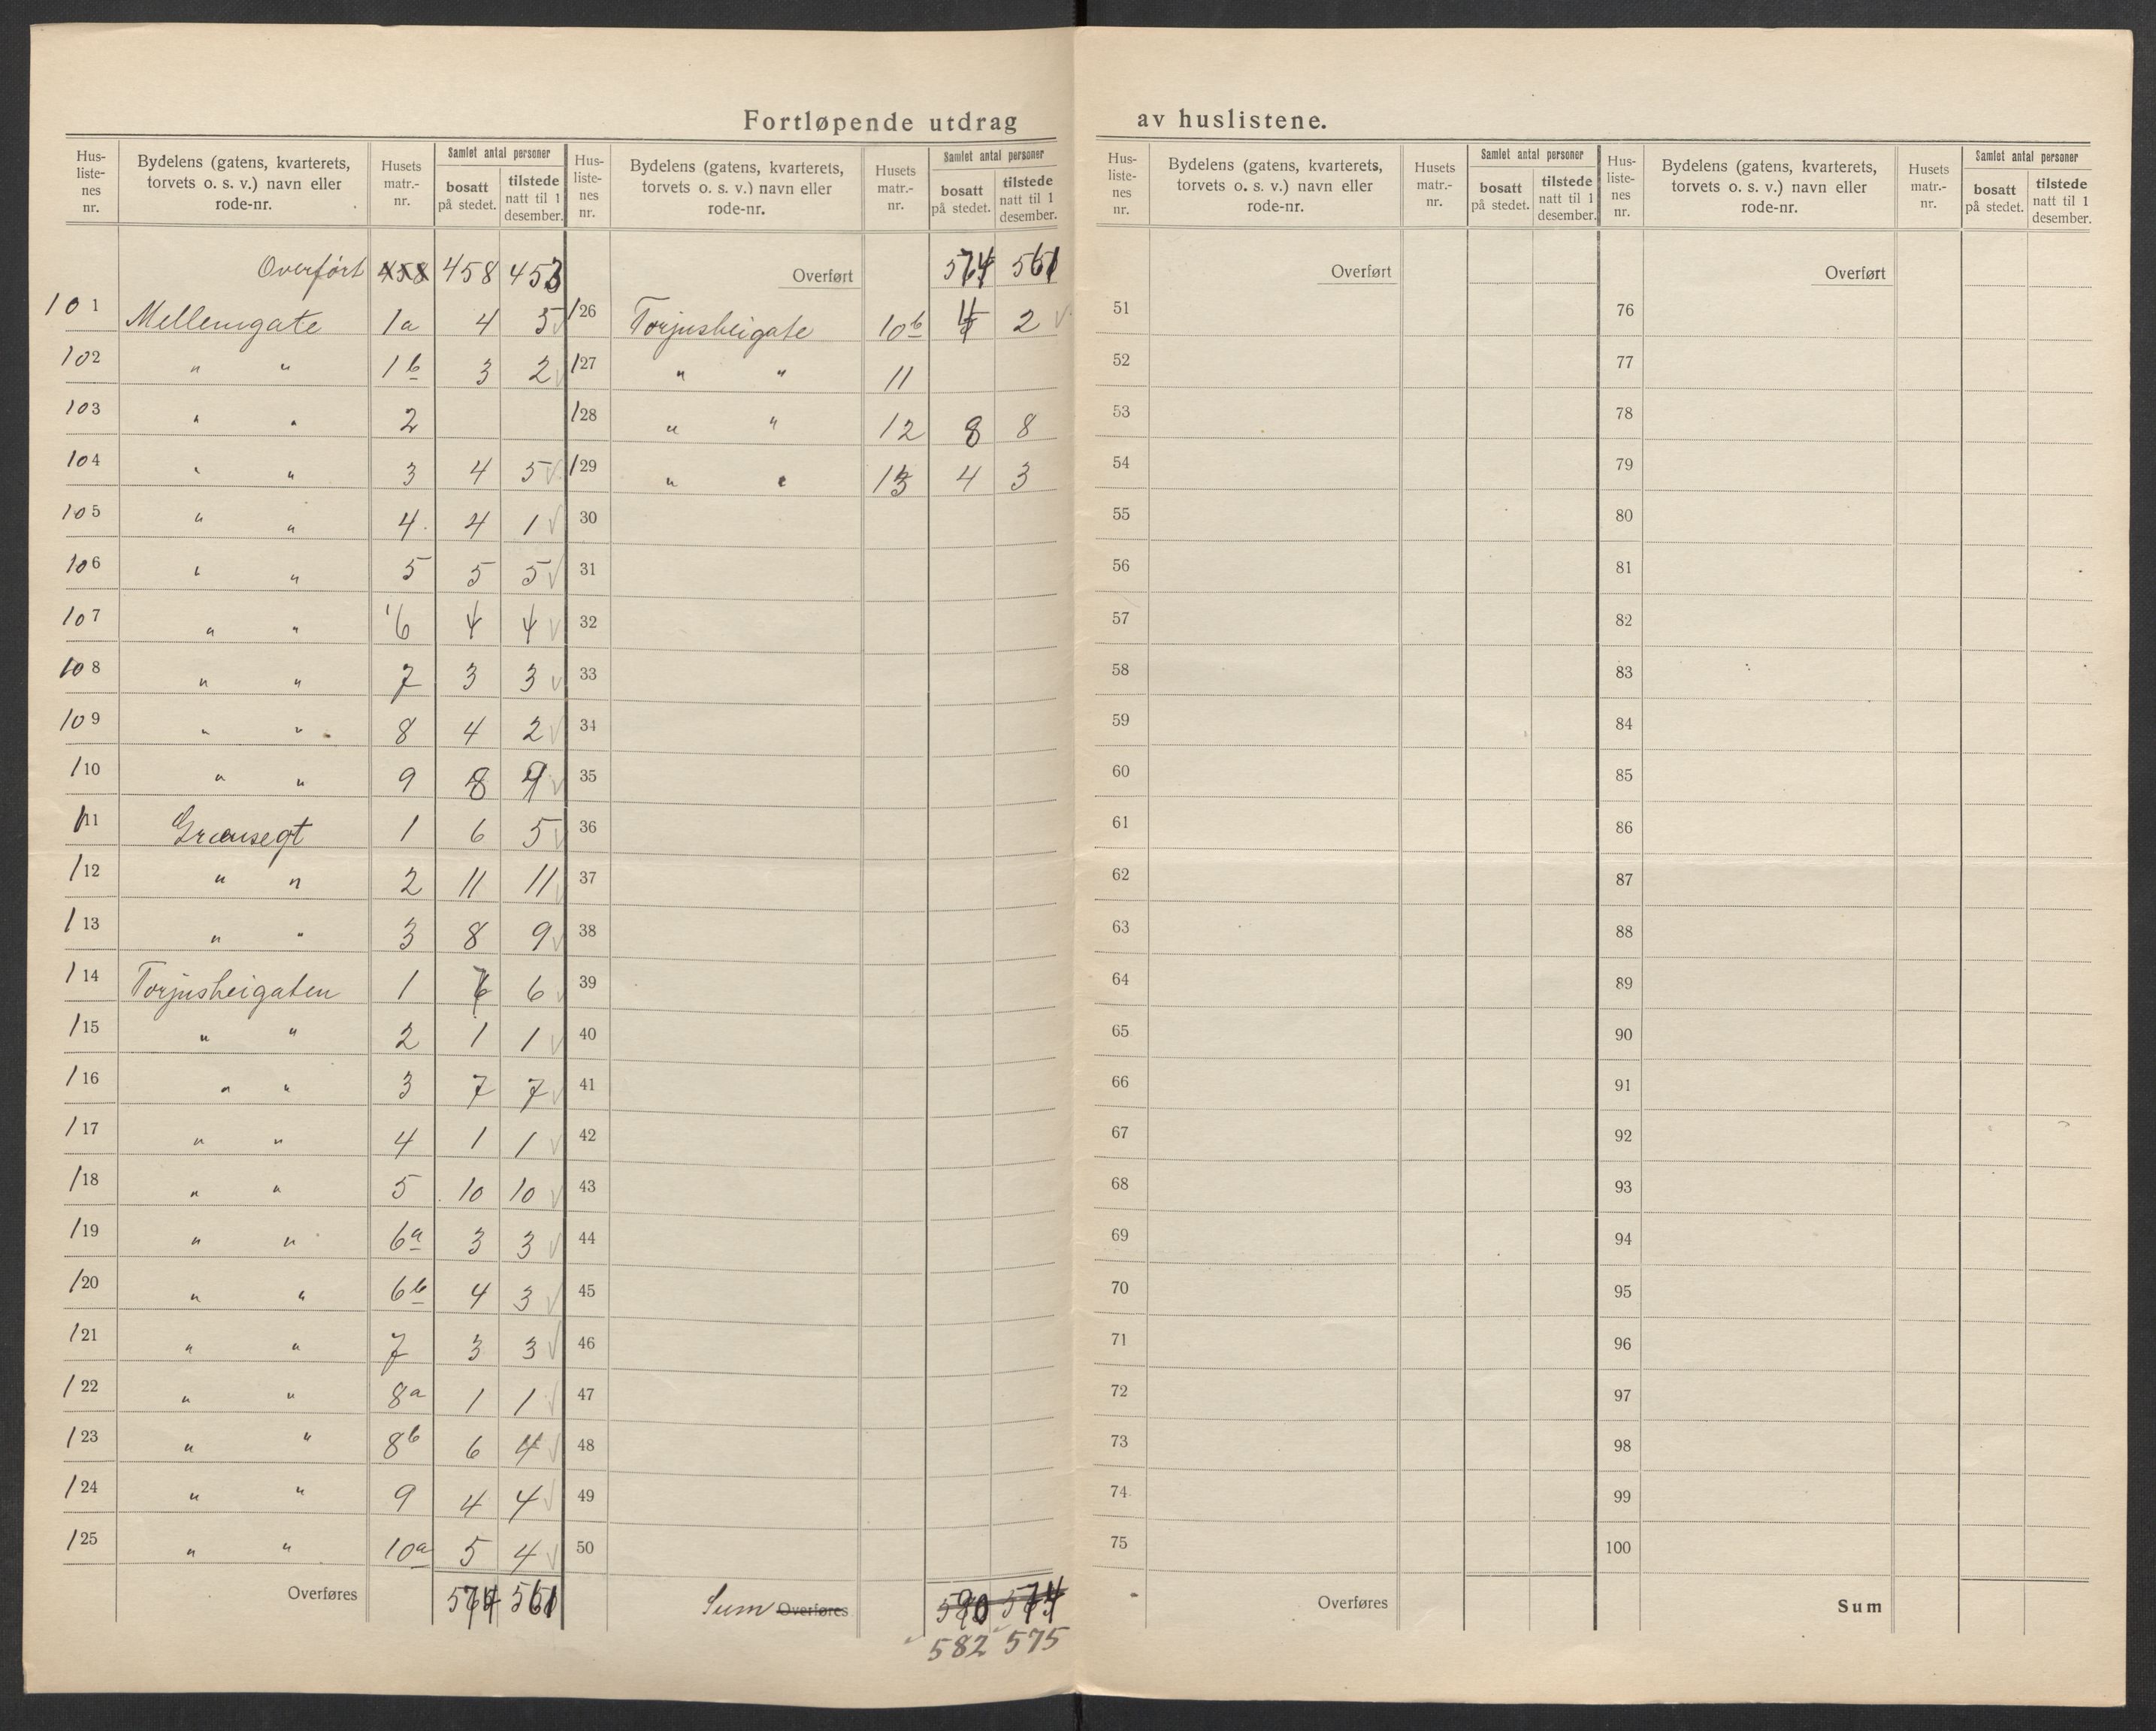 Fortløpende utdrag av huslistene.
Hus-listenes nr. | Bydelens (gatens, kvarterets, torvets o. s. v.) navn eller rode-nr. | Husets matr.-nr. | Samlet antal personer bosatt på stedet. | tilstede natt til 1 desember.
Overført 458 458 453
101 Mellemgate 1a 4 5
102 " " 1b 3 2
103 " " 2
104 " " 3 4 5
105 " " 4 4 1
106 " " 5 5 5
107 " " 6 4 4
108 " " 7 3 3
109 " " 8 4 2
110 " " 9 8 9
111 Grænsegt 1 6 5
112 " " 2 11 11
113 " " 3 8 9
114 Torjusheigaten 1 6
115 " " 2 1 1
116 " " 3 7 7
117 " " 4 1 1
118 " " 5 10 10
119 " " 6a 3 3
120 " " 6b 4 3
121 " " 7 3 3
122 " " 8a 1 1
123 " " 8b 6 4
124 " " 9 4 4
125 " " 10a 5 4
Overføres 574 561
Hus-listenes nr. | Bydelens (gatens, kvarterets, torvets o. s. v.) navn eller rode-nr. | Husets matr.-nr. | Samlet antal personer bosatt på stedet. | tilstede natt til 1 desember.
Overført 574 561
126 Torjusheigate 10b 4 2
127 " " 11
128 " " 12 8 8
129 " " 13 4 3
30
31
32
33
34
35
36
37
38
39
40
41
42
43
44
45
46
47
48
49
50
Sum Overføres 590 574
582 575
Hus-listenes nr. | Bydelens (gatens, kvarterets, torvets o. s. v.) navn eller rode-nr. | Husets matr.-nr. | Samlet antal personer bosatt på stedet. | tilstede natt til 1 desember.
Overført
51
52
53
54
55
56
57
58
59
60
61
62
63
64
65
66
67
68
69
70
71
72
73
74
75
Overføres
Hus-listenes nr. | Bydelens (gatens, kvarterets, torvets o. s. v.) navn eller rode-nr. | Husets matr.-nr. | Samlet antal personer bosatt på stedet. | tilstede natt til 1 desember.
Overført
76
77
78
79
80
81
82
83
84
85
86
87
88
89
90
91
92
93
94
95
96
97
98
99
100
Sum